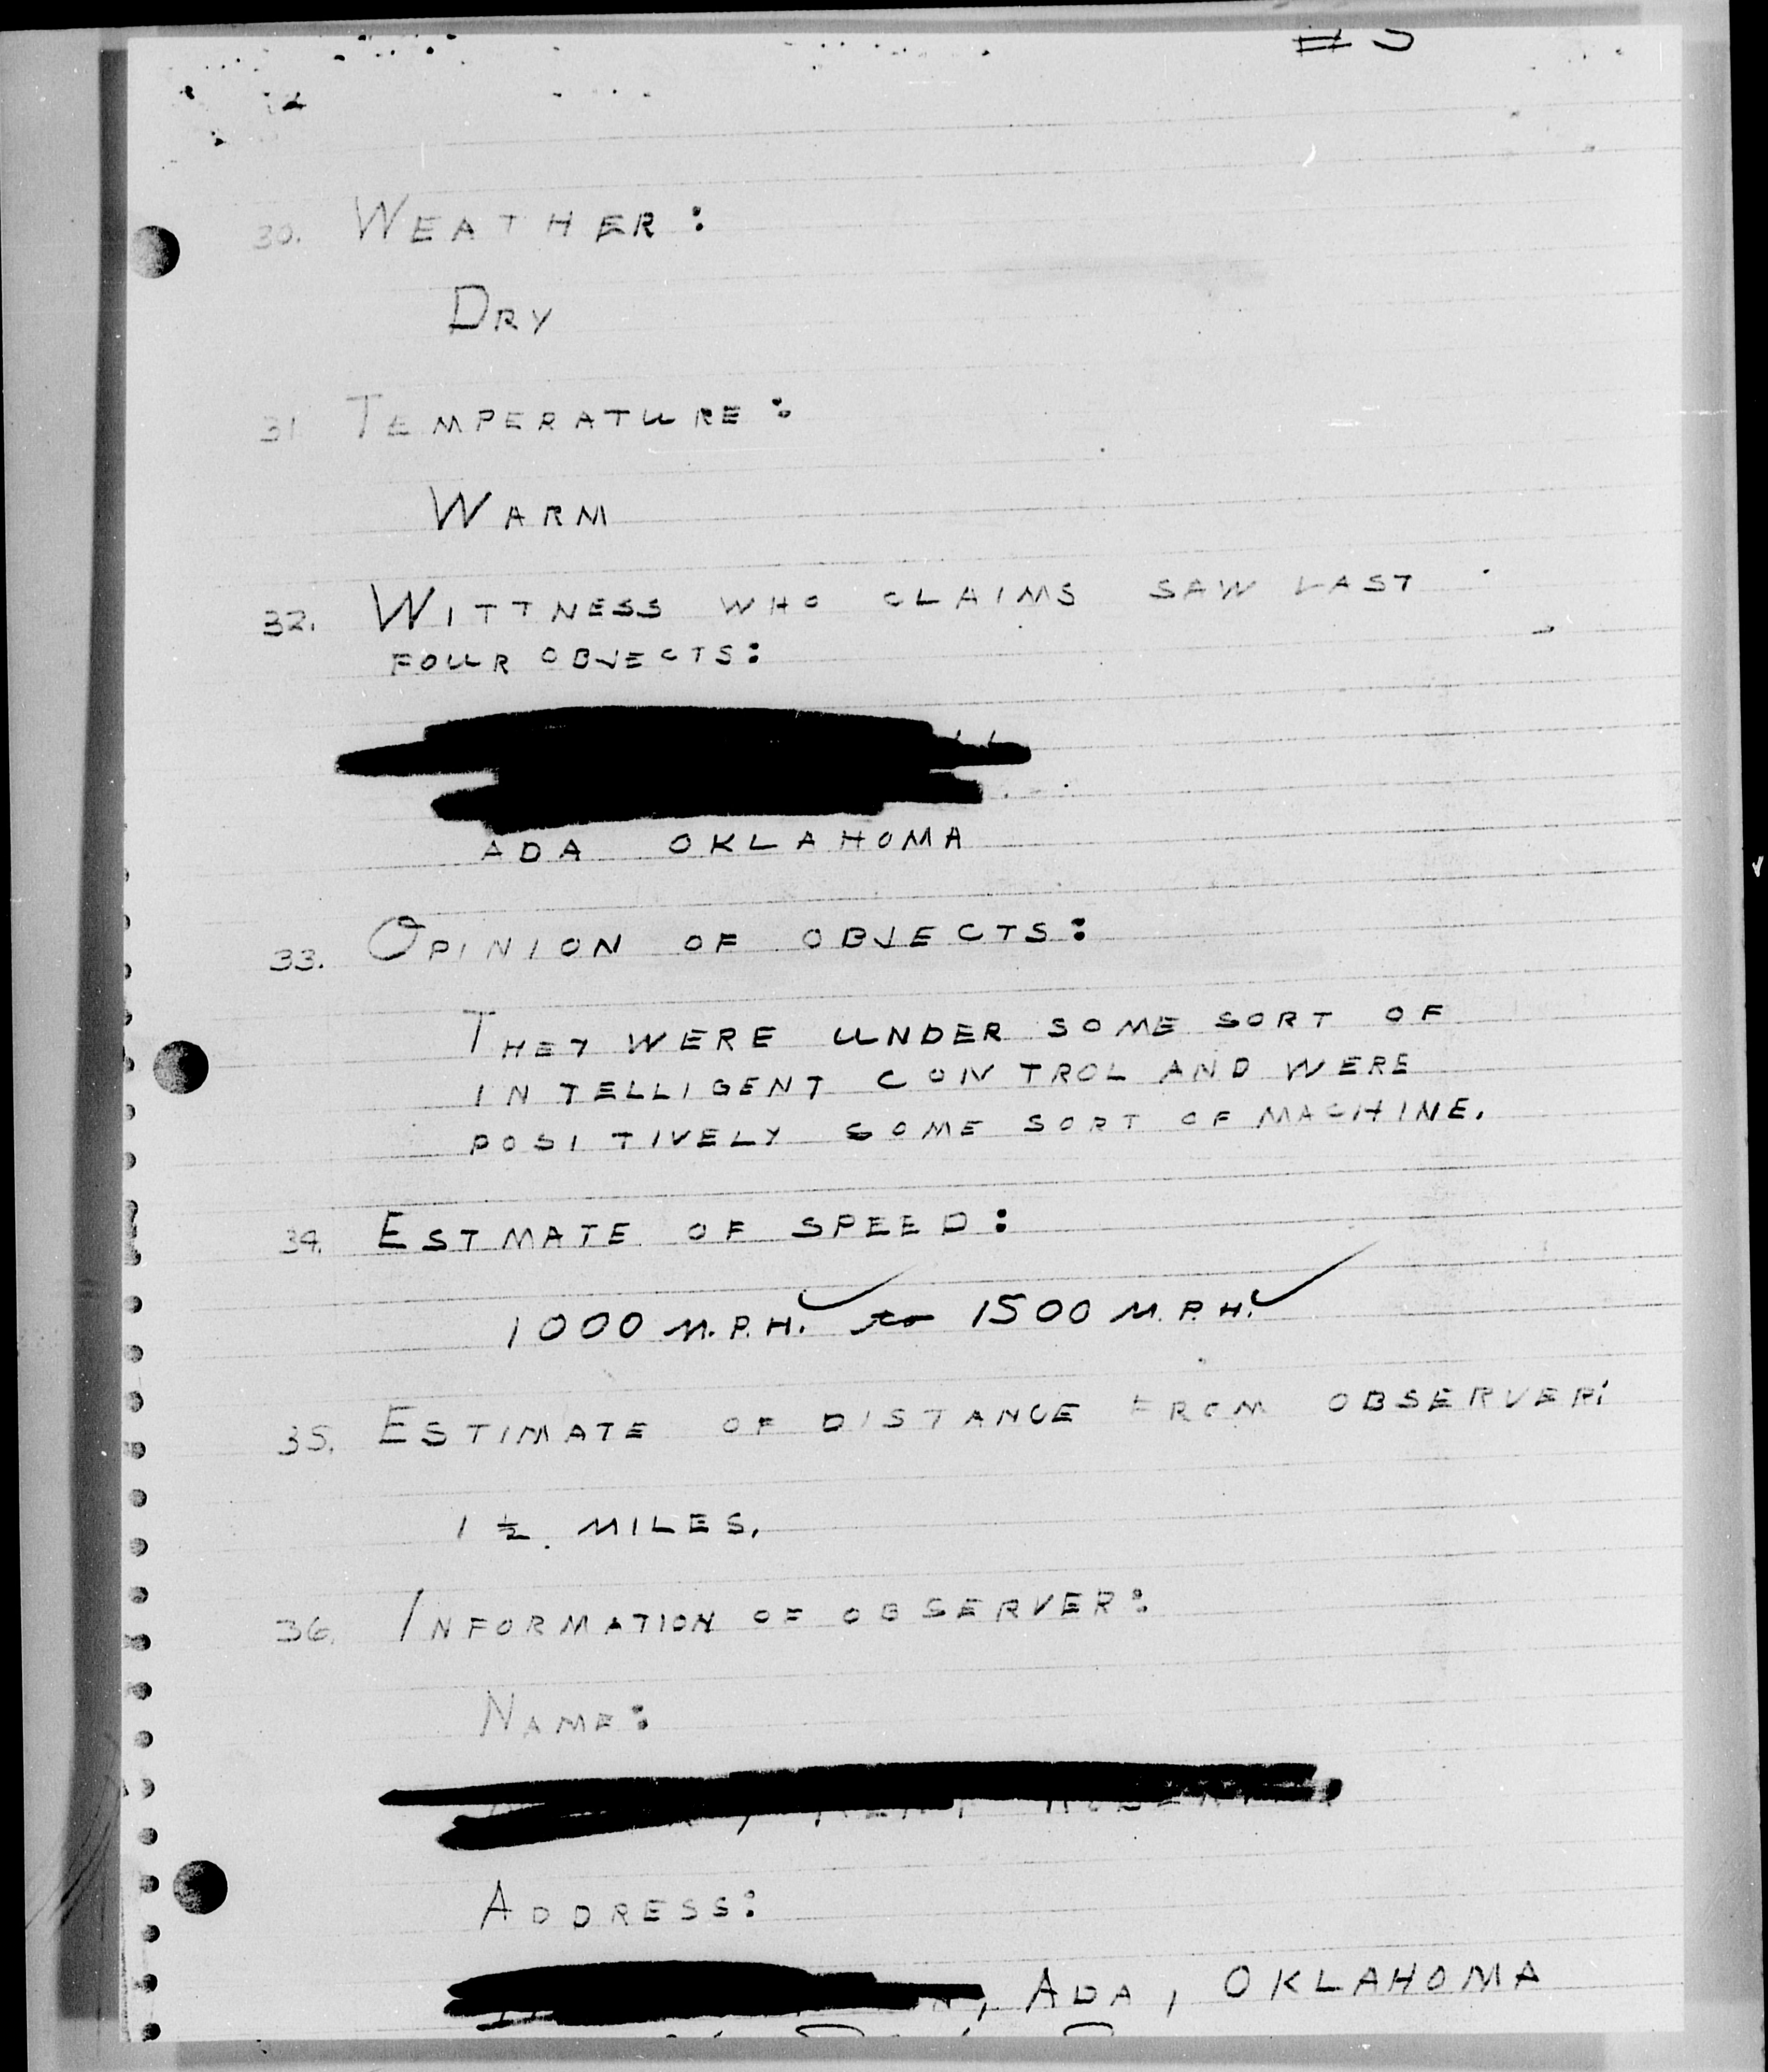 30. WEATHER:
DRY
31 TEMPERATURE:
WARM
32. WITTNESS WHO CLAIMS SAW LAST
FOUR OBJECTS:
ADA OKLAHOMA
33. OPINION OF OBJECTS:
THEY WERE UNDER SOME SORT OF
INTELLIGENT CONTROL AND WERE
POSITIVELY SOME SORT OF MACHINE.
34. ESTMATE OF SPEED:
1000 M.P.H. to 1500 M.P.H.
35. ESTIMATE OF DISTANCE FROM OBSERVER:
1 ½ MILES.
36. INFORMATION OF OBSERVER:
NAME:
ADDRESS:
, ADA, OKLAHOMA